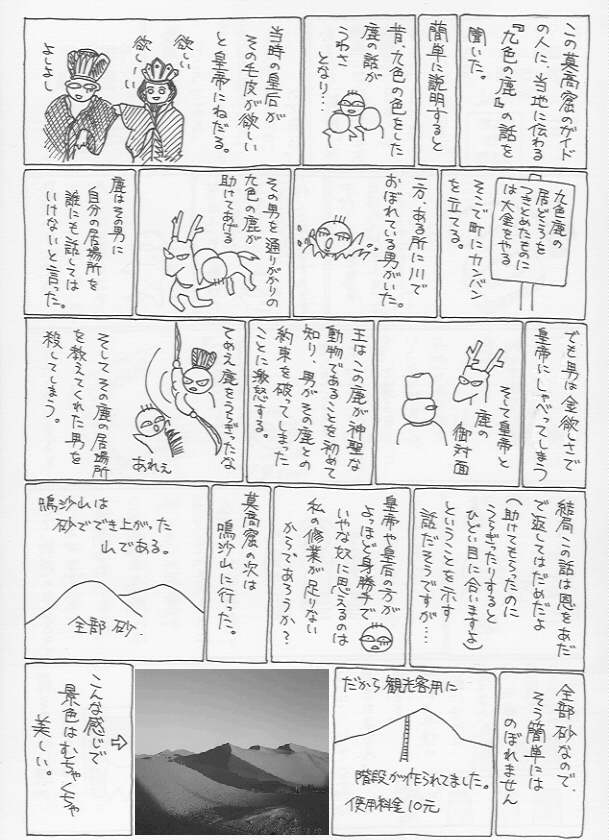 この莫高窟のガイド
の人に、当地に伝わる
『九色の鹿』の話を
聞いた。
簡単に説明すると
昔、九色の色をした
鹿の話が
うわさ
となり…
当時の皇后が
その毛皮が欲しい
と皇帝にねだる。
欲しい
欲しーい
よしよし
九色鹿の
居どころを
つきとめたものに
は大金をやる
そこで町にカンバン
を立てる。
一方、ある所に川で
おぼれている男がいた。
その男を通りがかりの
九色の鹿が
助けてあげる
鹿はその男に
自分の居場所を
誰にも話しては
いけないと言った。
でも男は金欲しさで
皇帝にしゃべってしまう
そして皇帝と
鹿の
御対面
王はこの鹿が神聖な
動物であることを初めて
知り、男がその鹿との
約束を破ってしまった
ことに激怒する。
てめえ鹿をうらぎったな
あれぇ
そしてその鹿の居場所
を教えてくれた男を
殺してしまう。
結局この話は恩をあだ
で返してはだめだよ
(助けてもらったのに
うらぎったりすると
ひどい目に合いますよ)
ということを示す
話だそうですが…
皇帝や皇后の方が
よっぽど身勝手で
いやな奴に思えるのは
私の修業が足りない
からであろうか？
莫高窟の次は
鳴沙山に行った。
鳴沙山は
砂ででき上がった
山である。
全部砂.
全部砂なので、
そう簡単には
のぼれません
だから観光客用に
階段が作られてました。
使用料金10元
⇨
こんな感じで
景色はむちゃくちゃ
美しい。